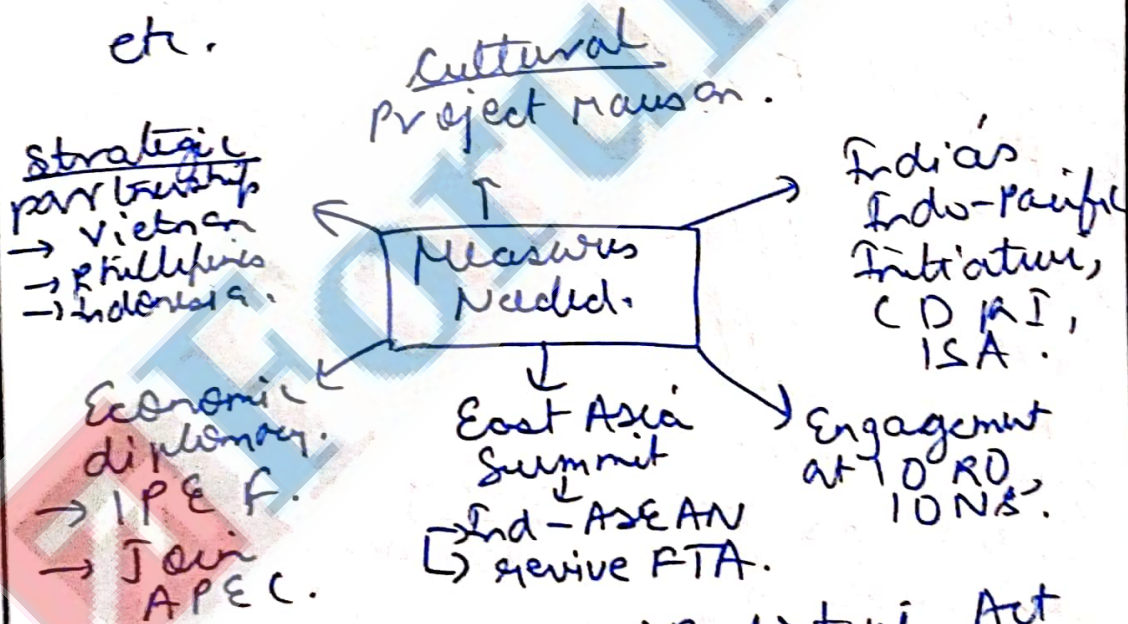 etc.
Cultural
Project Mausam.
Strategic
partnership
→ Vietnam
→ Phillipines
→ Indonesia.
India's
Indo-Pacific
Initiative,
CDRI,
ISA.
Measures
Needed.
Economic
diplomacy.
→ IPEF.
→ Join
APEC.
East Asia
Summit
↓
→ Ind-ASEAN
↳ revive FTA.
Engagement
at IORA,
IONS.
Act